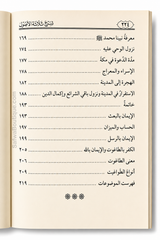 ٢٢٤
شرح ثلاثة الأصول
معرفة نبينا محمد ﷺ ١٦٩
نزول الوحي عليه ١٧٤
مدة الدعوة في مكة ١٧٧
الإسراء والمعراج ١٧٨
الهجرة إلى المدينة ١٨٣
الاستقرار في المدينة ونزول باقي الشرائع وإكمال الدين ١٨٨
خاتمة ١٩٣
الإيمان بالبعث ١٩٣
الحساب والميزان ١٩٧
الإيمان بالرسل ١٩٩
الكفر بالطاغوت والإيمان بالله ٢٠٠
معنى الطاغوت ٢٠١
أنواع الطواغيت ٢٠٥
فهرست الموضوعات ٢١٩